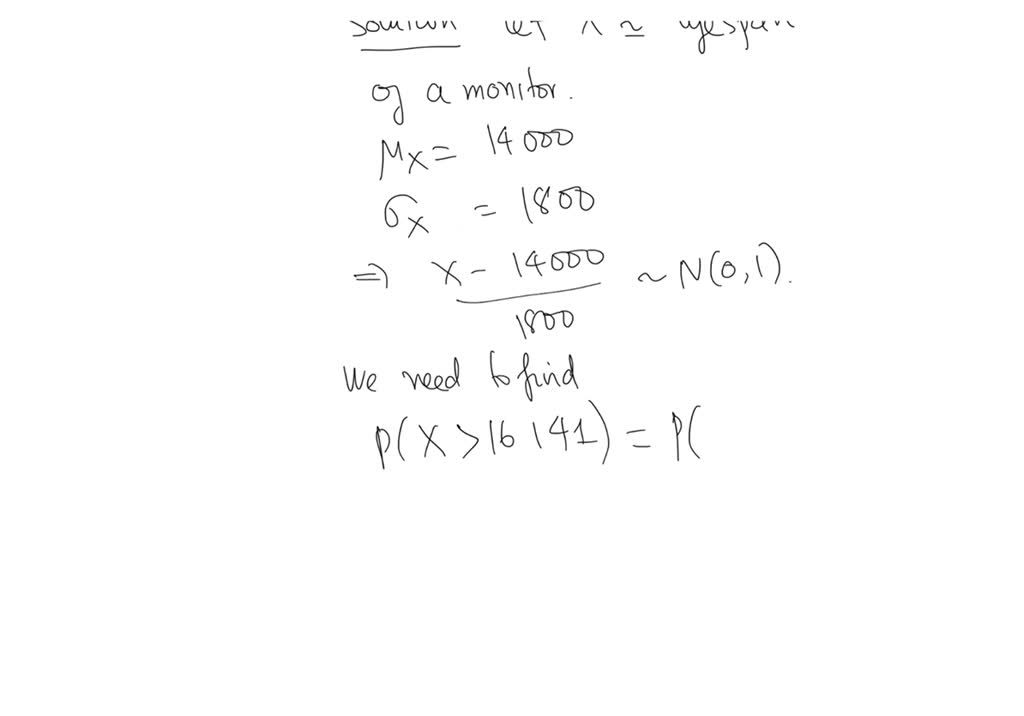 solution let X = lifespan
of a monitor.
μx = 14000
σx = 1800
⇒ X - 14000 ~ N(0,1).
1800
We need to find
P(X > 16141) = P(